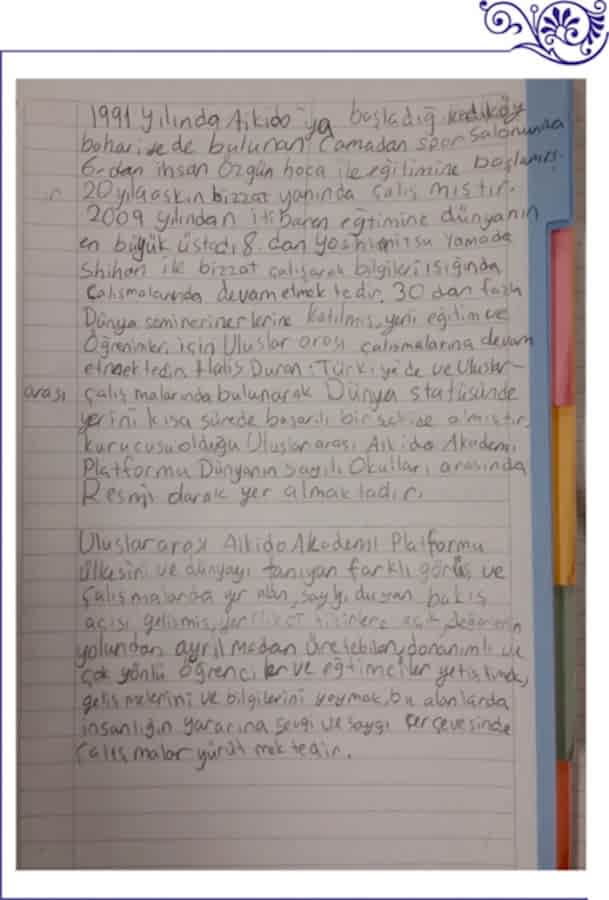 1991 yılında Aikido'ya başladığ kadıköy
bahariyede bulunan Çamadan spor Salonunda
6.dan ihsan Özgün hoca ile eğitimine başlamış.
20 yılı aşkın bizzat yanında çalış mıştır.
2009 yılından itibaren eğtimine dünyanın
en büyük üstadı 8. dan yoshimitsu Yamada
Shihan ile bizzat çalışarak bilgileri ışığında
Çalışmalarında devam etmek tedir. 30 dan fazla
Dünya seminerinerlerine katılmış, yeni eğitim ve
Öğrenimler için Uluslar arası çalışmalarına devam
etmektedir. Halis Duran. Türkiye'de ve Uluslar-
arası çalış malarında bulunarak Dünya statüsünde
yerini kısa sürede başarılı bir şekilde almıştır.
kurucusu olduğu Uluslar arası Aikido Akademi
Platformu Dünyanın sayılı Okulları arasında
Resmi olarak yer almaktadır.
Uluslar arası Aikido Akademi Platformu
ülkesini ve dünyayı tanıyan farklı görüş ve
çalışmalarda yer alan, saygı duyan bakış
açısı gelişmiş, açık, değerlerin
yolundan ayrılmadan üretebilen, donanımlı ve
çok yönlü öğrenciler ve eğtimciler yetiştirmek,
geliş melerini ve bilgilerini yaymak, bu alanlarda
insanlığın yararına sevgi ve saygı çerçevesinde
çalış malar yürüt mek tedir.